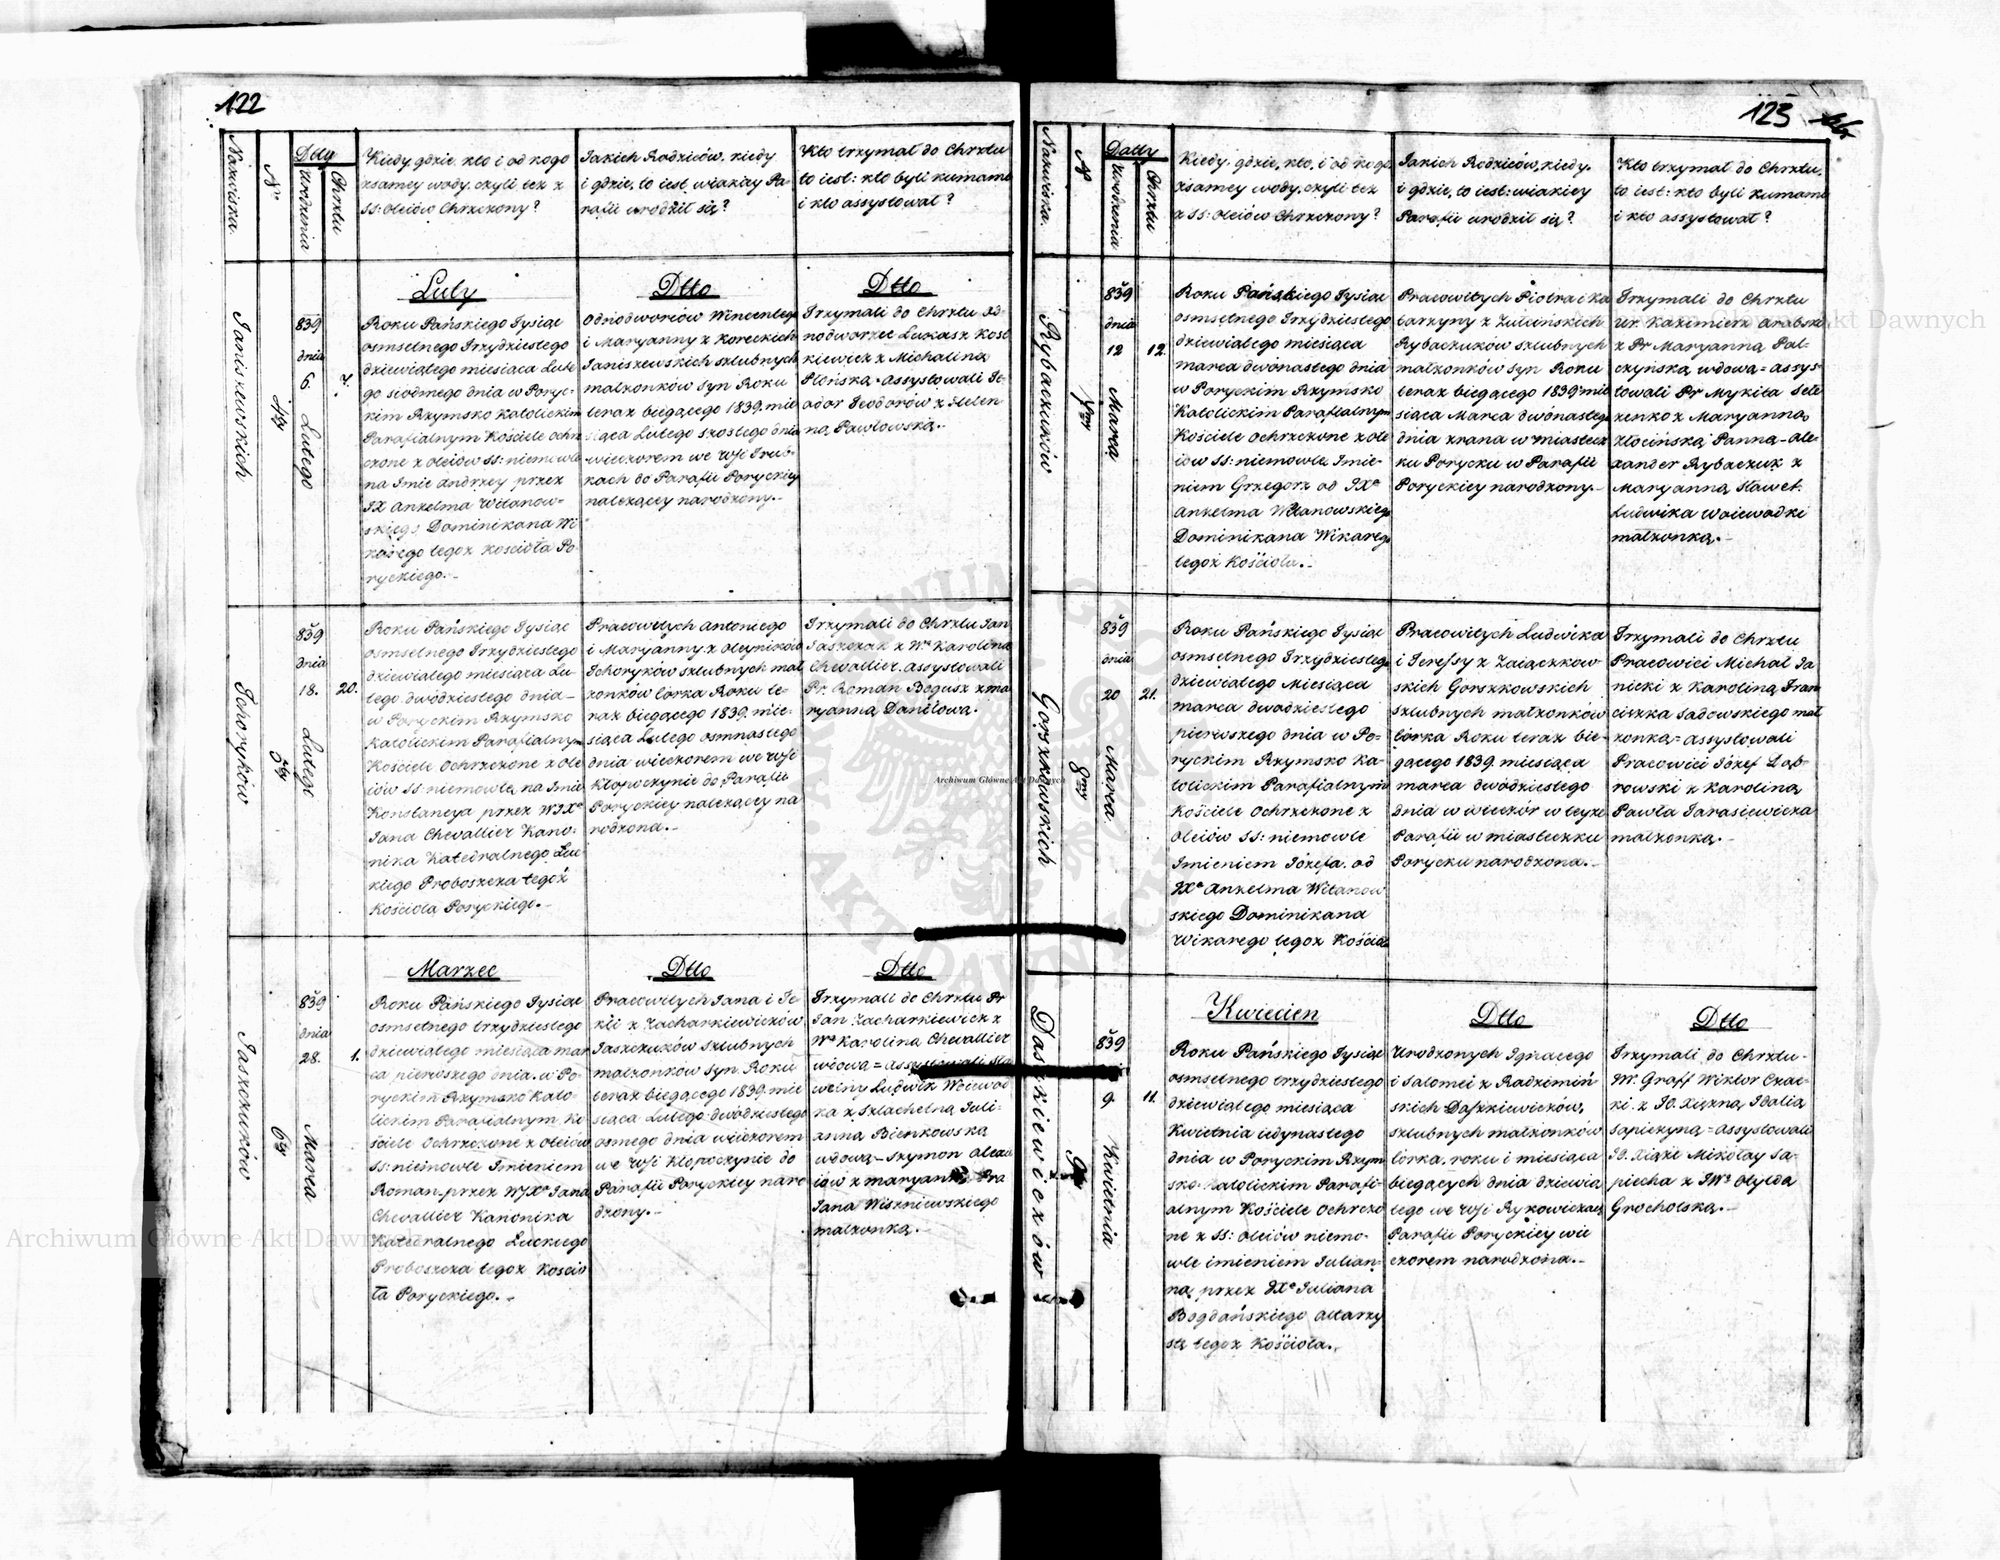 122
Nazwiska.
N°
Dtty
Urodzenia
Chrztu
Kiedy, gdzie, kto i od kogo
z samey wody, czyli też z
SS: Oleiów Chrzczony?
Jakich Rodziców, kiedy
i gdzie, to iest w iakiey Pa-
rafii urodził się?
Kto trzymał do Chrztu
to iest: kto byli kumame
i kto assystował?
Janiszewskich
4ty
839
dnia
6. Lutego
7.
Luty
Roku Pańskiego Tysiąc
osmsetnego Trzydziestego
dziewiątego miesiąca Lute
go siódmego dnia w Poryc-
kim Rzymsko Katolickim
Parafialnym Kościele Ochrz
czone z Oleiów SS: niemowle
na Imie Andrzey przez
JX Anzelma Witanow-
skiego Dominikana Wi
karego tegoż Kościoła Po-
ryckiego.-
Dtto
Odnodworców Wincentego
i Maryanny z Koreckich
Janiszewskich szlubnych
małżonków Syn Roku
teraz biegącego 1839. mie
siąca Lutego szostego dnia
wieczorem we wsi Grub-
kach do Parafii Poryckiey
należącey narodzony.-
Dtto
Trzymali do Chrztu Od-
nodworzec Łukasz Kost
kiewicz z Michaliną
Płońską - Assystowali Te-
ador Teodorów z Helen
ną Pawłowską.-
Tchoryków
5ty
839
dnia
18. Lutego
20.
Roku Pańskiego Tysiąc
osmsetnego Trzydziestego
dziewiątego miesiąca Lu-
tego dwódziestego dnia-
w Poryckim Rzymsko
Katolickim Parafialnym
Kościele Ochrzczone z Ole
iów SS niemowle, na Imie
Konstancya przez WJX°
Jana Chevallier Kano-
nika Katedralnego Łuc-
kiego Proboszcza tegoż
Kościoła Poryckiego.-
Pracowitych Antoniego
i Maryanny z Oleyników
Tchoryków szlubnych mał
żonków Córka Roku te-
raz biegącego 1839. mie-
siąca Lutego osmnastego
dnia wieczorem we wsi
Kłopoczynie do Parafii
Poryckiey należącey na
rodzona.-
Trzymali do Chrztu Jan
Jaszczuk z Wą Karoliną
Chevallier. Assystowali
Pr. Roman Bogusz z Ma
ryanną Daniłową.-
Jaszczuków
6ty
839
dnia
28.
Marca
1.
Marzec
Roku Pańskiego Tysiąc
osmsetnego trzydziestego
dziewiątego miesiąca mar
ca pierwszego dnia. w Po-
ryckim Rzymsko Kato-
lickim Parafialnym Ko
ściele Ochrzczone z Oleiów
SS: niemowle Imieniem
Roman przez WJX° Jana
Chevallier Kanonika
Katedralnego Łuckiego
Proboszcza tegoż Koscio
ła Poryckiego.-
Dtto
Pracowitych Jana i Te
kli z Zacharkiewiczów
Jaszczuków szlubnych
małżonków Syn. Roku
teraz biegącego 1839. mie
siąca Lutego dwódziestego
osmego dnia wieczorem
we wsi Kłopoczynie do
Parafii Poryckiey naro
dzony.-
Dtto
Trzymali do Chrztu Pr
Jan Zacharkiewicz z
Wą Karoliną Chevallier
wdową = Assystowali Sła
wetny Ludwik Woiewód
ka z Szlachetną Juli-
anną Bienkowską
wdową - Szymon
z Maryanną
Jana Wiszniewskiego
małżonką.-
123
Nazwiska.
N
Datty
Urodzenia
Chrztu
Kiedy, gdzie, kto, i od kogo
z samey wody, czyli też
z SS: Oleiów Chrzczony?
Jakich Rodziców, kiedy.
i gdzie, to iest: w iakiey
Parafii urodził się?
Kto trzymał do Chrztu,
to iest: kto byli kumame
i kto assystował?
Rybaczuków
7my
839
dnia
12
Marca
12.
Roku Pańskiego Tysiąc
osmsetnego Trzydziestego
dziewiątego miesiąca
marca dwónastego dnia
w Poryckim Rzymsko
Katolickim Parafialnym
Kościele Ochrzczone z Ole
iów SS: niemowle, Imie-
niem Grzegorz od JX°
Anzelma Witanowskiego
Dominikana Wikarego
tegoż Kościoła.-
Pracowitych Piotra i Ka
tarzyny z Zulinskich
Rybaczuków szlubnych
małżonków Syn Roku
teraz biegącego 1839 mie
siąca Marca dwónastego
dnia zrana w miastecz
ku Porycku w Parafii
Poryckiey narodzony.-
Trzymali do Chrztu
Ur. Kazimierz Arabski
z Pr Maryanną Pal-
czyńską, wdową = Assys-
towali Pr Mykita Sele
zenko z Maryanną
Złocińską Panną - Ale-
xander Rybaczuk z
Maryanną Sławet.
Ludwika Woiewódki
małżonką.-
Gorszkowskich
8my
839
dnia
20
Marca
21.
Roku Pańskiego Tysiąc
osmsetnego Trzydziestego
dziewiątego Miesiąca
marca dwadziestego
pierwszego dnia w Po-
ryckim Rzymsko Ka-
tolickim Parafialnym
Kościele Ochrzczone z
Oleiów SS: niemowle
Imieniem Józefa. od
JX° Anzelma Witanow
skiego Dominikana
Wikarego tegoż Kościoła
Pracowitych Ludwika
i Teressy z Zaiączkow
skich Gorszkowskich
szlubnych małżonków
Córka Roku teraz bie-
gącego 1839. miesiąca
marca dwódziestego
dnia w wieczór w teyże
Parafii w miasteczku
Porycku narodzona.-
Trzymali do Chrztu
Pracowici Michał Ja
nicki z Karoliną Fran
ciszka Sadowskiego mał
żonką = Assystowali
Pracowici Józef Dąb-
rowski z Karoliną
Pawła Tarasiewicza
małżonką.-
Daszkiewiczów
9ty
839
9.
Kwietnia
11.
Kwiecien
Roku Pańskiego Tysiąc
osmsetnego trzydziestego
dziewiątego miesiąca
Kwietnia iedynastego
dnia w Poryckim Rzym
sko-Katolickim Parafi-
alnym Kościele Ochrzczo
ne z SS: Oleiów niemo-
wle imieniem Julian-
na, przez JX° Juliana
Bogdańskiego Altarzy
stę tegoż Kościoła.-
Dtto
Urodzonych Ignacego
i Salomei z Radzimiń
skich Daszkiewiczów,
szlubnych małżonków
Córka, roku i miesiąca
biegących dnia dziewią
tego we wsi Rykowiczach
Parafii Poryckiey wie
czorem narodzona.-
Dtto
Trzymali do Chrztu-
JW. Graff Wiktor Czac-
ki. z JO. Xiężną Idalią
Sapieżyną = Assystowali
JO. Xiąże Mikołay Sa-
piecha z JWą Otyldą
Grocholską.-
Archiwum Główne Akt Dawnych
Archiwum Główne Akt Dawnych
Archiwum Główne Akt Dawnych